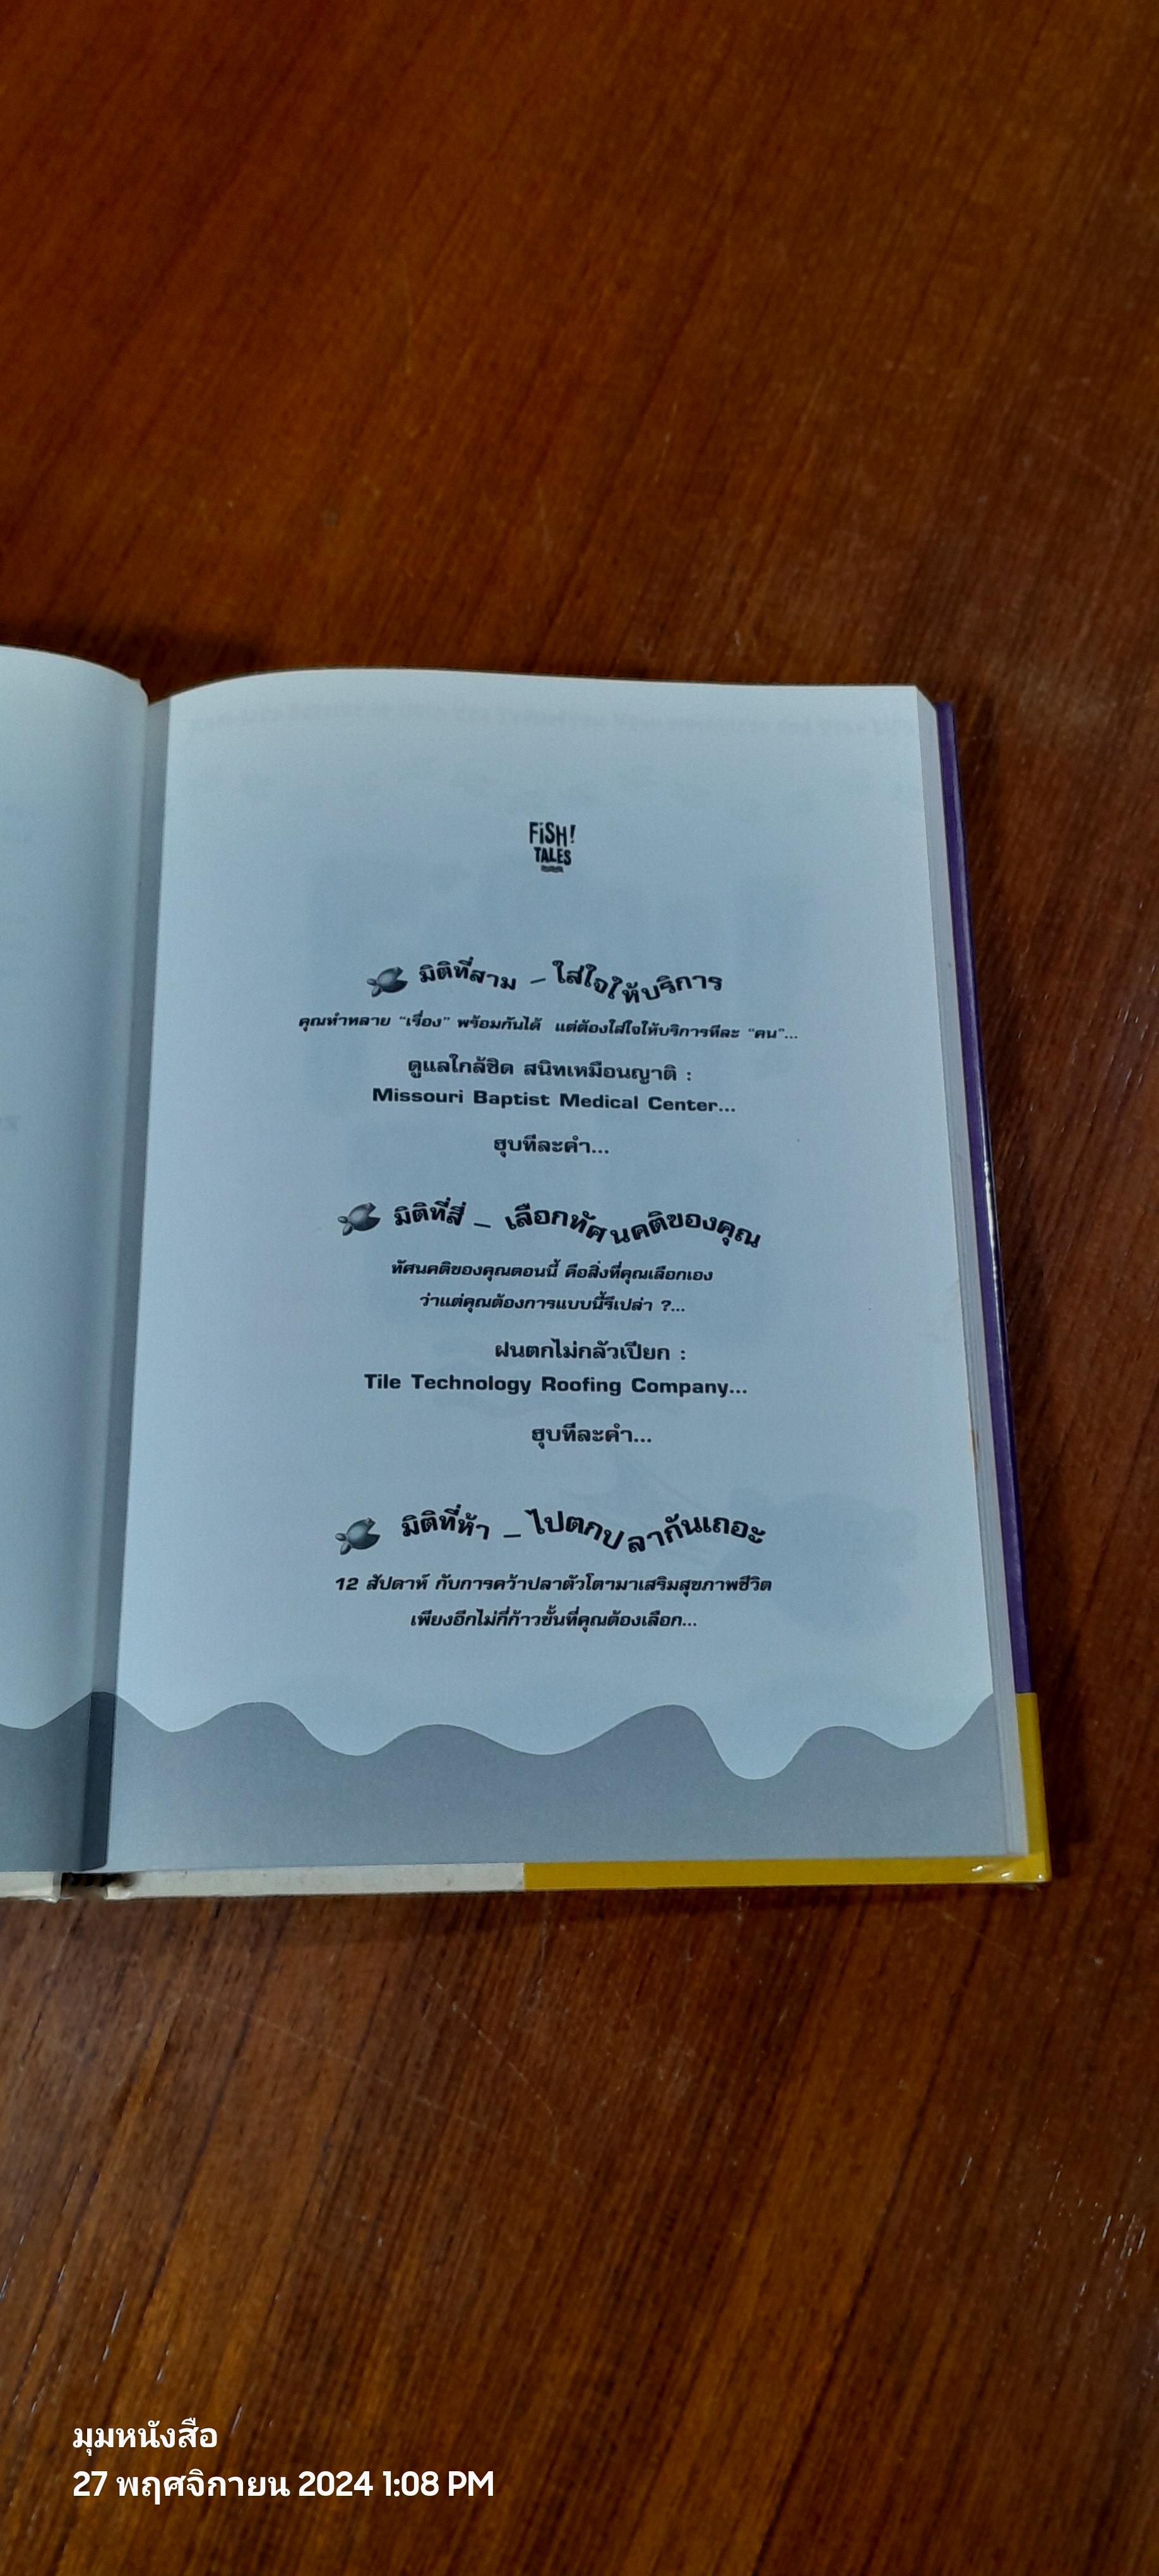 FiSH!
TALES
มิติที่สาม – ใส่ใจให้บริการ
คุณทำหลาย “เรื่อง” พร้อมกันได้ แต่ต้องใส่ใจให้บริการทีละ “คน”...
ดูแลใกล้ชิด สนิทเหมือนญาติ :
Missouri Baptist Medical Center...
ฮุบทีละคำ...
มิติที่สี่ – เลือกทัศนคติของคุณ
ทัศนคติของคุณตอนนี้ คือสิ่งที่คุณเลือกเอง
ว่าแต่คุณต้องการแบบนี้รึเปล่า ?...
ฝนตกไม่กลัวเปียก :
Tile Technology Roofing Company...
ฮุบทีละคำ...
มิติที่ห้า – ไปตกปลากันเถอะ
12 สัปดาห์ กับการคว้าปลาตัวโตๆมาเสริมสุขภาพชีวิต
เพียงอีกไม่กี่ก้าวขั้นที่คุณต้องเลือก...
มุมหนังสือ
27 พฤศจิกายน 2024 1:08 PM